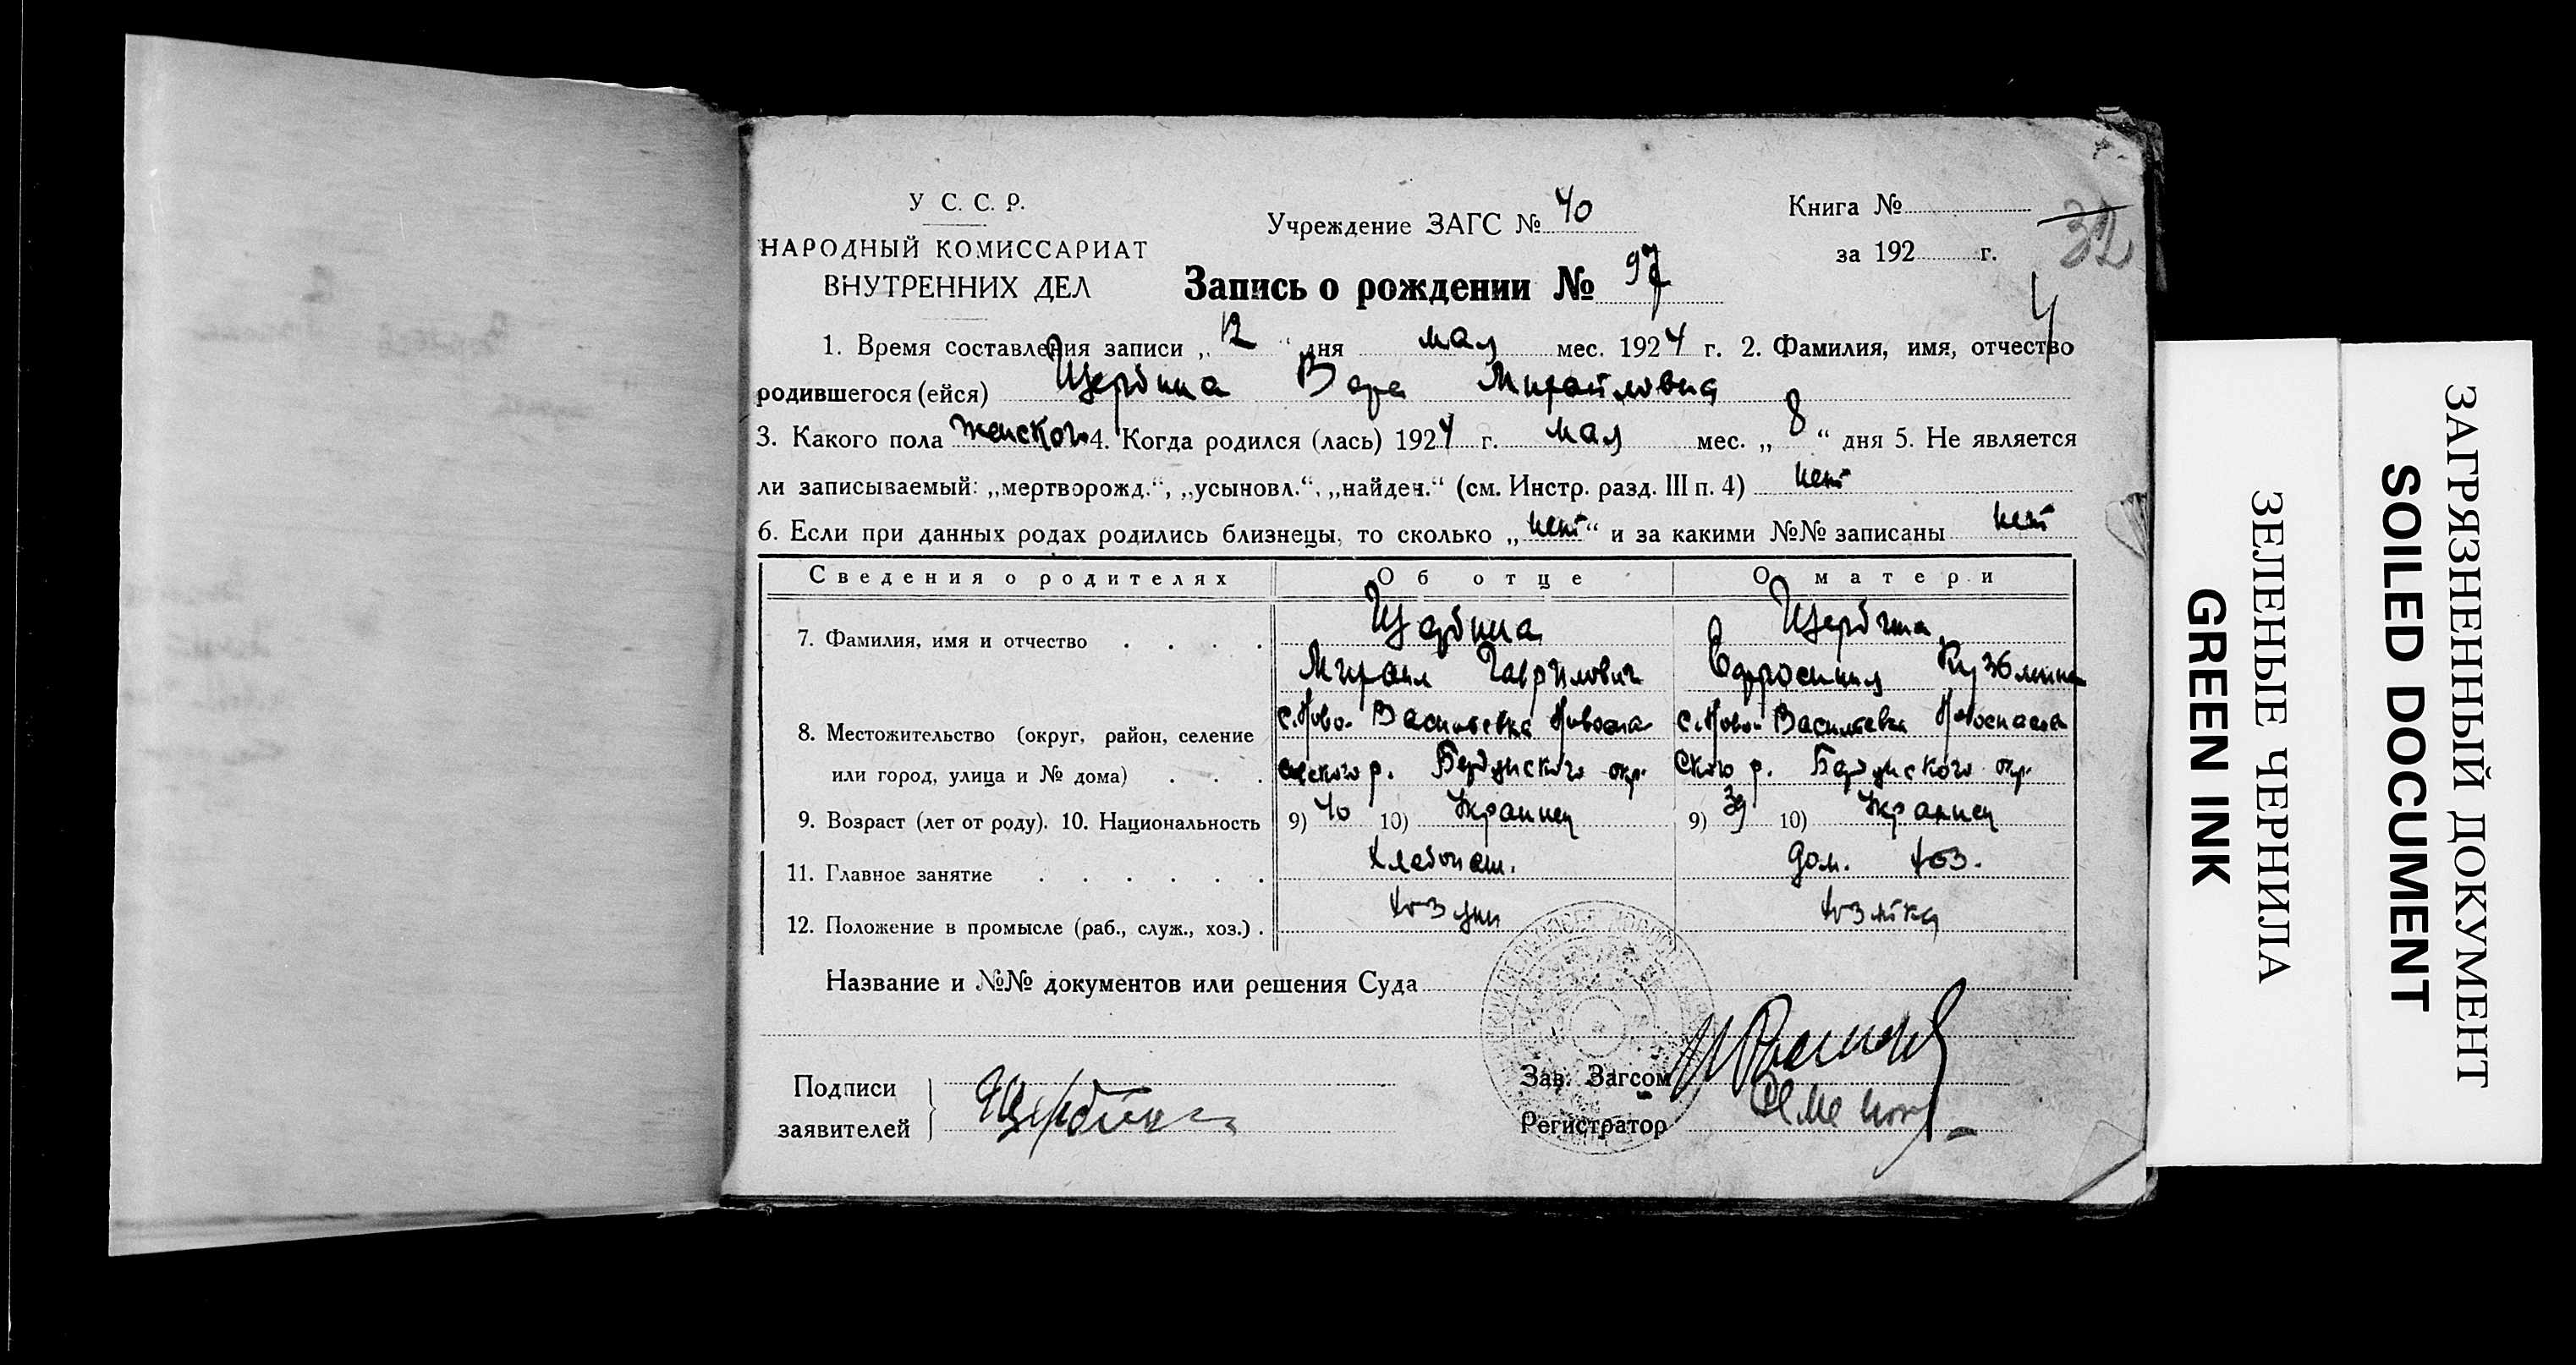 У С. С. Р.
НАРОДНЫЙ КОМИССАРИАТ
ВНУТРЕННИХ ДЕЛ
Учреждение ЗАГС № 40
Книга №
за 192 г.
32
4
Запись о рождении № 97
1. Время составления записи „ 12 “ дня мая мес. 1924 г. 2. Фамилия, имя, отчество
родившегося (ейся) Щербина Вера Михайловна
3. Какого пола женского 4. Когда родился (лась) 1924 г. мая мес. „ 8 “ дня 5. Не является
ли записываемый: „мертворожд.“, „усыновл.“, „найден.“ (см. Инстр. разд. III п. 4) нет
6. Если при данных родах родились близнецы, то сколько „ нет “ и за какими №№ записаны нет
Сведения о родителях Об отце О матери
7. Фамилия, имя и отчество Щербина Щербина
Михаил Гаврилович Ефросиния Кузьмини
8. Местожительство (округ, район, селение с. Ново-Васильевка Новоспа с. Ново-Васильевка Новоспасов
или город, улица и № дома) ского р. Бердянского окр. ского р. Бердянского окр.
9. Возраст (лет от роду). 10. Национальность 9) 40 10) Украинец 9) 39 10) Украинец
11. Главное занятие хлебопаш. дом. хоз.
12. Положение в промысле (раб., служ., хоз.) хозяин хозяйка
Название и №№ документов или решения Суда
Подписи
заявителей Щербина
Зав. Загсом
Регистратор
ЗЕЛЕНЫЕ ЧЕРНИЛА
GREEN INK
ЗАГРЯЗНЕННЫЙ ДОКУМЕНТ
SOILED DOCUMENT